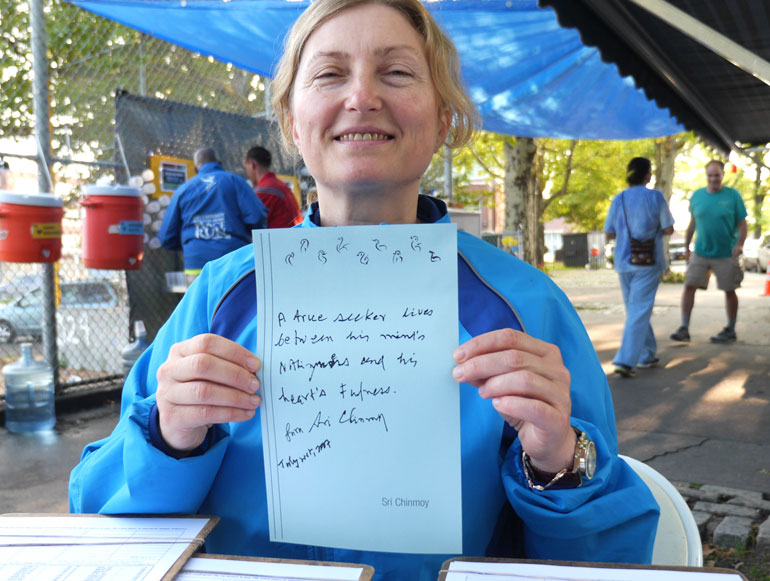 A true seeker lives
between his mind's
Nothingness and his
heart's Fulness.
from Sri Chinmoy
Sri Chinmoy
RUN